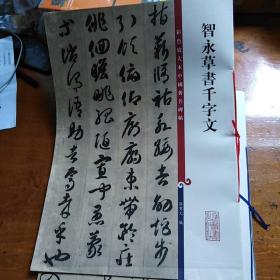 彩色放大本中國著名碑帖
智永草書千字文
指薪修祜永綏吉劭矩步
引領俯仰廊廟束帶矜莊
徘徊瞻眺孤陋寡聞愚蒙
等誚謂語助者焉哉乎也